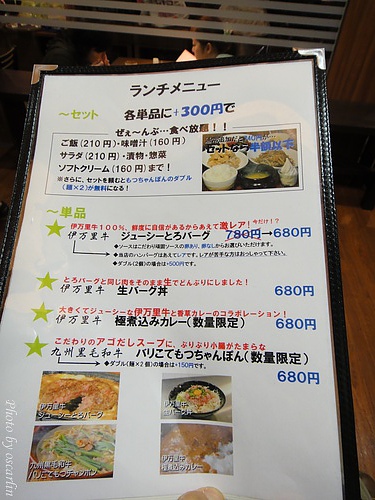 ランチメニュー
～セット 各単品に+300円で
ぜぇ～んぶ…食べ放題！！
ご飯(210円)・味噌汁(160円)
サラダ(210円)・漬物・惣菜
ソフトクリーム(160円)まで！
※さらに、セットを頼むともつちゃんぽんのダブル
(麺×2)が無料になる！
セットなら半額以下
～単品
伊万里牛100%、鮮度に自信があるからあえて激レア！今だけ！？
伊万里牛 ジューシーとろバーグ 780円→680円
◆ソースはこだわり味噌ソースの卵あり、卵なしからお選びいただけます。
◆当店のハンバーグはあえてレアです。レアが苦手な方はおっしゃって下さい。
◆ダブル(2個)の場合は+500円です。
とろバーグと同じ肉をそのまま生でどんぶりにしました！
伊万里牛 生バーグ丼 680円
大きくてジューシーな伊万里牛と香草カレーのコラボレーション！
伊万里牛 極煮込みカレー(数量限定) 680円
こだわりのアゴだしスープに、ぷりぷり小腸がたまらな
九州黒毛和牛 バリこてもつちゃんぽん(数量限定)
◆ダブル(麺×2)の場合は+150円です。
680円
伊万里牛
ジューシーとろバーグ
伊万里牛
生バーグ丼
九州黒毛和牛
バリこてもつチャンポン
伊万里牛
極煮込みカレー
Photo by oscarlin